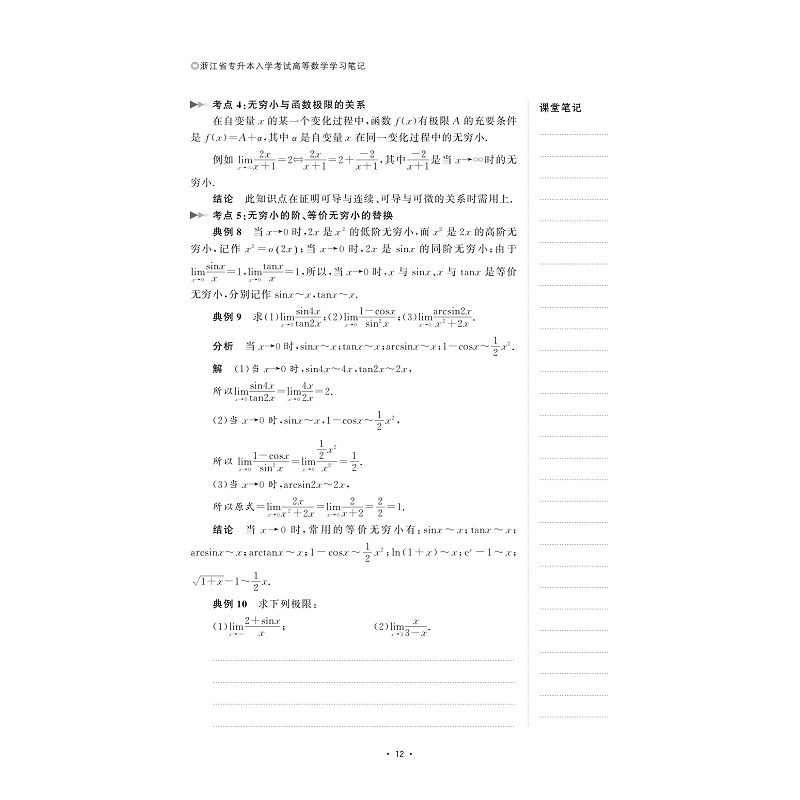 ◎浙江省专升本入学考试高等数学学习笔记
考点 4:无穷小与函数极限的关系
在自变量 x 的某一个变化过程中,函数 f(x)有极限 A 的充要条件
是 f(x)=A+α,其中 α 是自变量 x 在同一变化过程中的无穷小.
例如 lim_{x→∞} 2x/(x+1)=2⇔2x/(x+1)=2+(-2)/(x+1),其中(-2)/(x+1)是当 x→∞时的无
穷小.
结论 此知识点在证明可导与连续、可导与可微的关系时需用上.
考点 5:无穷小的阶、等价无穷小的替换
典例 8 当 x→0 时,2x 是 x² 的低阶无穷小,而 x² 是 2x 的高阶无
穷小,记作 x²=o(2x);当 x→0 时,2x 是 sinx 的同阶无穷小;由于
lim_{x→0} sinx/x=1,lim_{x→0} tanx/x=1,所以,当 x→0 时,x 与 sinx、x 与 tanx 是等价
无穷小,分别记作 sinx~x,tanx~x.
典例 9 求(1)lim_{x→0} sin4x/tan2x;(2)lim_{x→0} (1-cosx)/sin²x;(3)lim_{x→0} arcsin2x/(x²+2x).
分析 当 x→0 时,sinx~x;tanx~x;arcsinx~x;1-cosx~1/2 x².
解 (1)当 x→0 时,sin4x~4x,tan2x~2x,
所以lim_{x→0} sin4x/tan2x=lim_{x→0} 4x/2x=2.
(2)当 x→0 时,sinx~x,1-cosx~1/2 x²,
所以 lim_{x→0} (1-cosx)/sin²x=lim_{x→0} (1/2 x²)/x²=1/2.
(3)当 x→0 时,arcsin2x~2x,
所以原式=lim_{x→0} 2x/(x²+2x)=lim_{x→0} 2/(x+2)=2/2=1.
结论 当 x→0 时,常用的等价无穷小有:sinx~x;tanx~x;
arcsinx~x;arctanx~x;1-cosx~1/2 x²;ln(1+x)~x;eˣ-1~x;
√(1+x)-1~1/2 x.
典例 10 求下列极限:
(1)lim (2+sinx)/x; (2)lim_{x→3} x/(3-x).
课堂笔记
· 12 ·